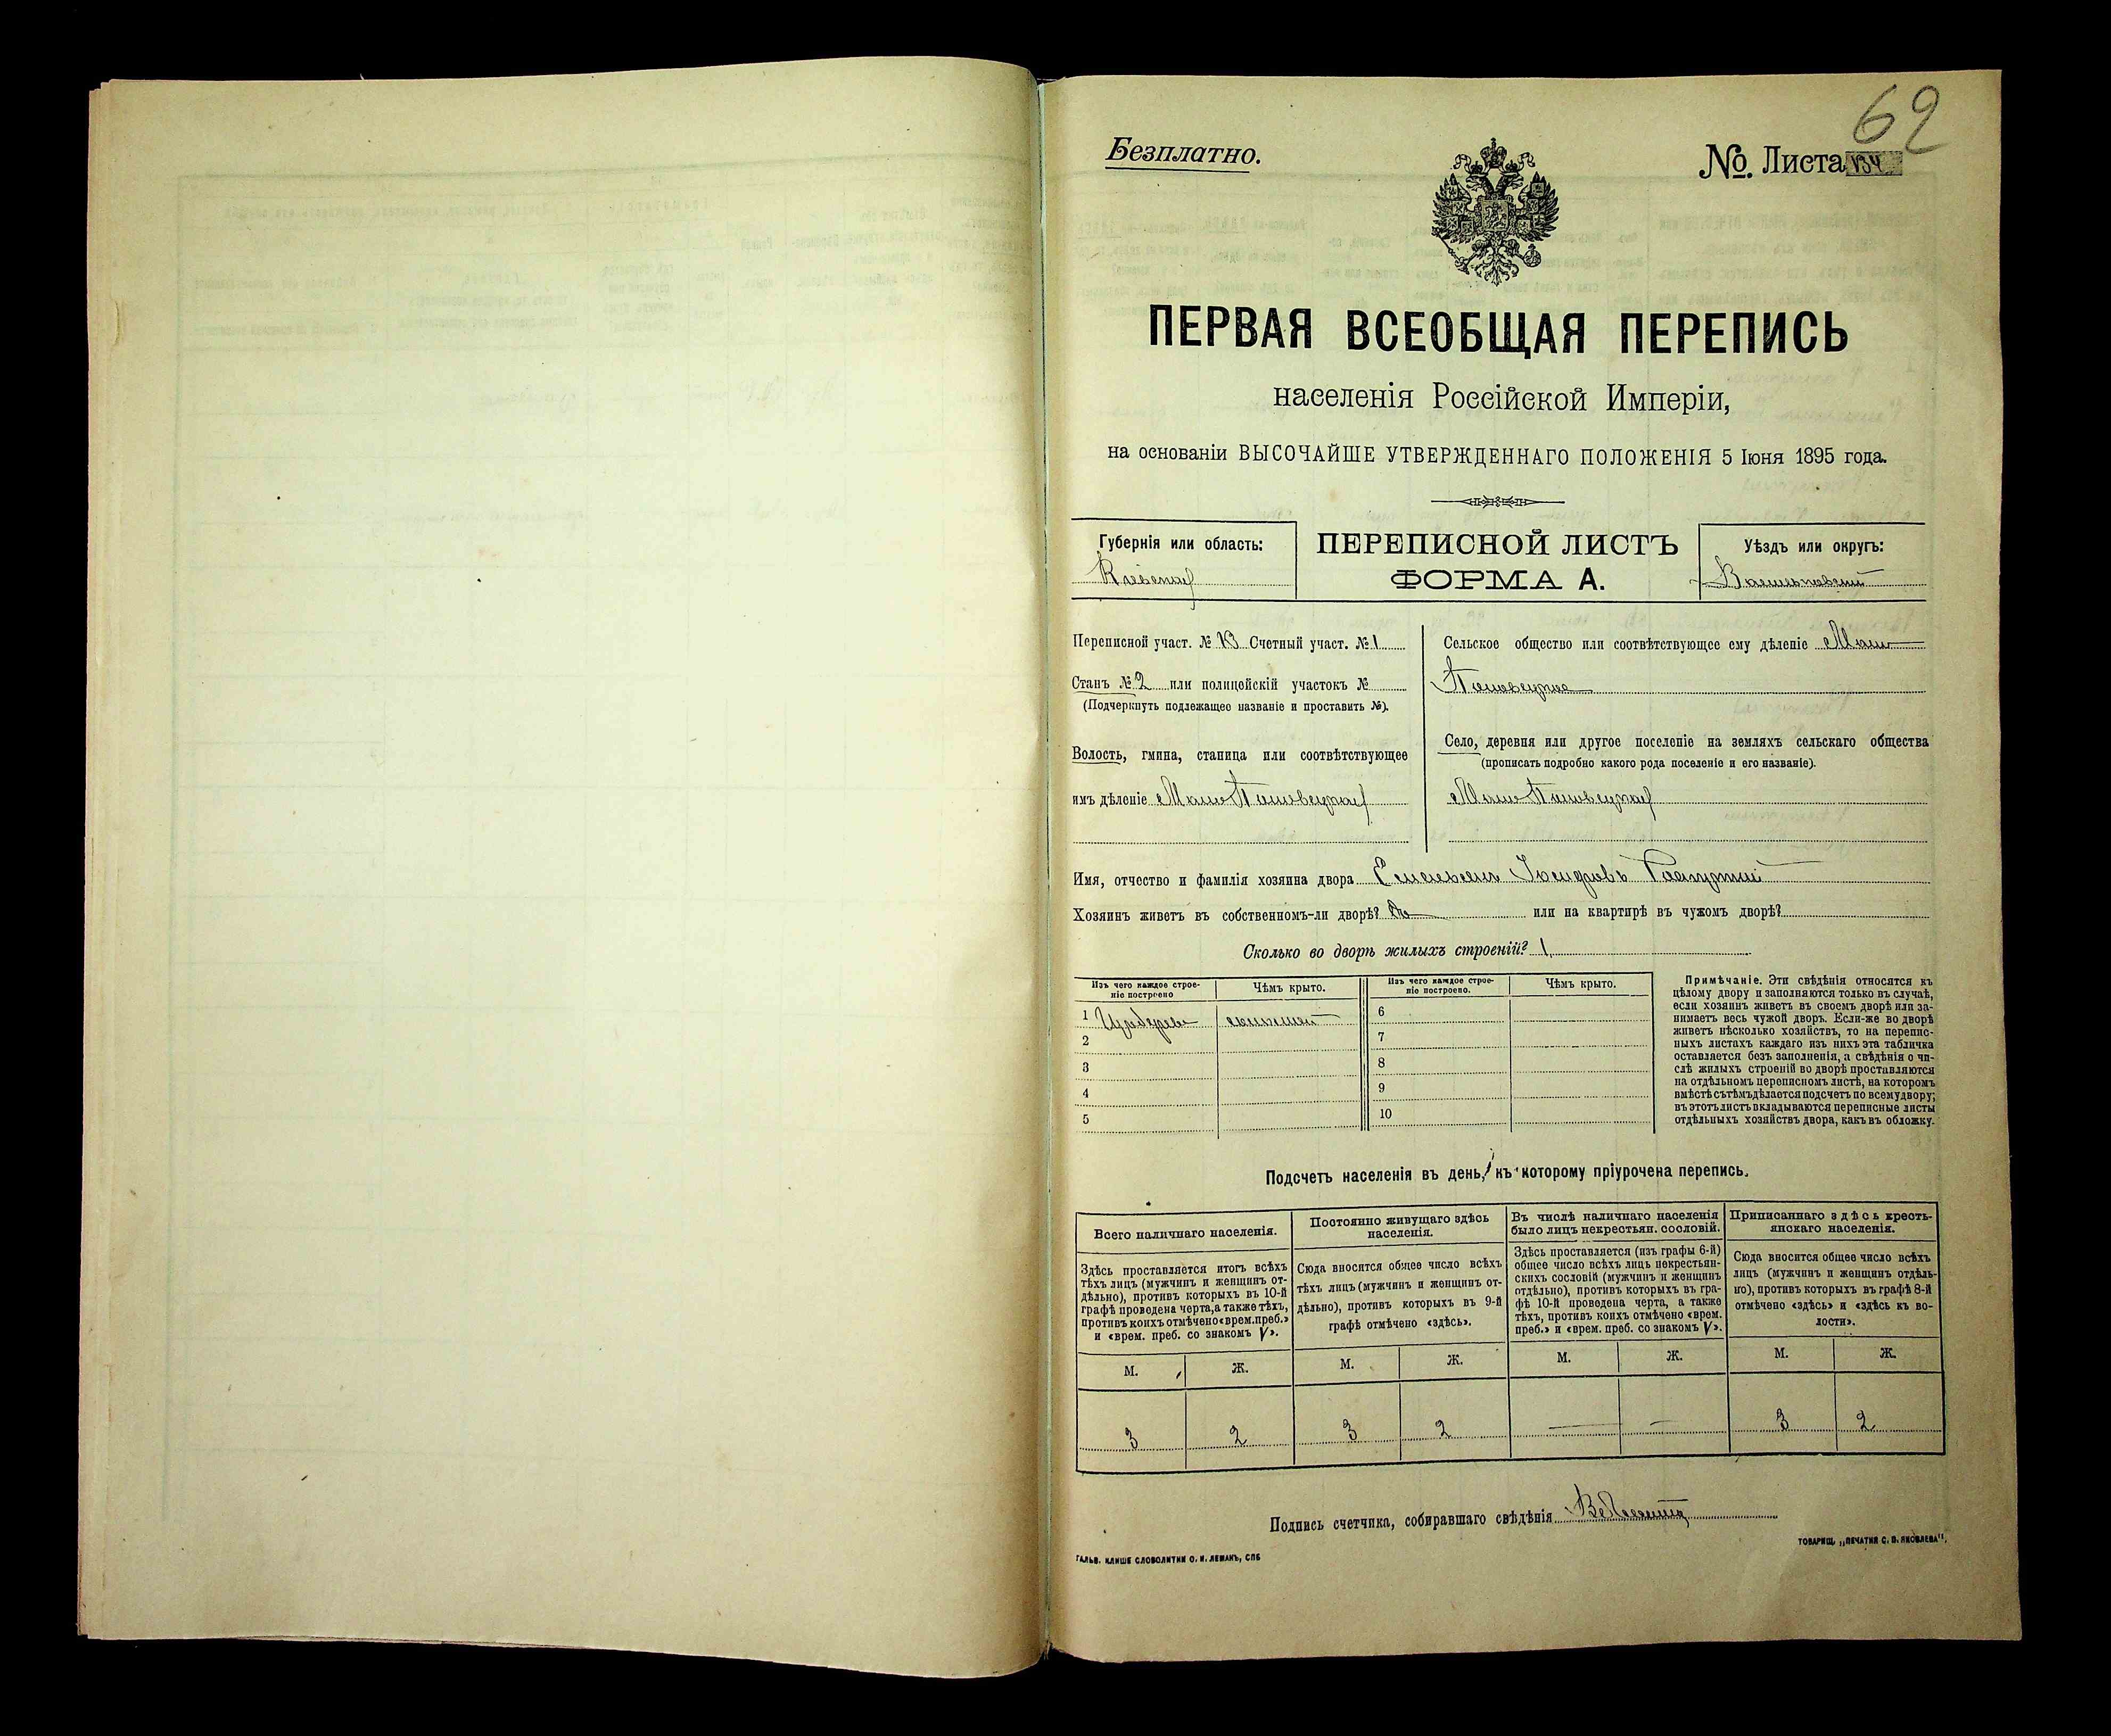 62
Безплатно.
№. Листа 134
ПЕРВАЯ ВСЕОБЩАЯ ПЕРЕПИСЬ
населенія Россійской Имперіи,
на основаніи ВЫСОЧАЙШЕ УТВЕРЖДЕННАГО ПОЛОЖЕНІЯ 5 Іюня 1895 года.
Губернія или область:
Кіевская
ПЕРЕПИСНОЙ ЛИСТЪ
ФОРМА А.
Уѣздъ или округъ:
Васильковскій
Переписной участ. № 13 Счетный участ. № 1
Станъ № 2 или полицейскій участокъ №
(Подчеркнуть подлежащее названіе и проставить №).
Волость, гмина, станица или соотвѣтствующее
имъ дѣленіе Мало Половецкая
Сельское общество или соотвѣтствующее ему дѣленіе Мало
Половецкое
Село, деревня или другое поселеніе на земляхъ сельскаго общества
(прописать подробно какого рода поселеніе и его названіе).
Мало Половецкая
Имя, отчество и фамилія хозяина двора Емельянъ
Хозяинъ живетъ въ собственномъ-ли дворѣ? Да или на квартирѣ въ чужомъ дворѣ?
Сколько во дворѣ жилыхъ строеній? 1
Изъ чего каждое строе-
ніе построено
Чѣмъ крыто.
Изъ чего каждое строе-
ніе построено.
Чѣмъ крыто.
1 Изъ дерева соломой
2
3
4
5
6
7
8
9
10
Примѣчаніе. Эти свѣдѣнія относятся къ
цѣлому двору и заполняются только въ случаѣ,
если хозяинъ живетъ въ своемъ дворѣ или за-
нимаетъ весь чужой дворъ. Если-же во дворѣ
живетъ нѣсколько хозяйствъ, то на перепис-
ныхъ листахъ каждаго изъ нихъ эта табличка
оставляется безъ заполненія, а свѣдѣнія о чи-
слѣ жилыхъ строеній во дворѣ проставляются
на отдѣльномъ переписномъ листѣ, на которомъ
вмѣстѣ съ тѣмъ дѣлается подсчетъ по всему двору;
въ этотъ листъ вкладываются переписные листы
отдѣльныхъ хозяйствъ двора, какъ въ обложку.
Подсчетъ населенія въ день, къ которому пріурочена перепись.
Всего наличнаго населенія.
Здѣсь проставляется итогъ всѣхъ
тѣхъ лицъ (мужчинъ и женщинъ от-
дѣльно), противъ которыхъ въ 10-й
графѣ проведена черта, а также тѣхъ,
противъ коихъ отмѣчено «врем. преб.»
и «врем. преб. со знакомъ V».
Постоянно живущаго здѣсь
населенія.
Сюда вносится общее число всѣхъ
тѣхъ лицъ (мужчинъ и женщинъ от-
дѣльно), противъ которыхъ въ 9-й
графѣ отмѣчено «здѣсь».
Въ числѣ наличнаго населенія
было лицъ некрестьян. сословій.
Здѣсь проставляется (изъ графы 6-й)
общее число всѣхъ лицъ некрестьян-
скихъ сословій (мужчинъ и женщинъ
отдѣльно), противъ которыхъ въ гра-
фѣ 10-й проведена черта, а также
тѣхъ, противъ коихъ отмѣчено «врем.
преб.» и «врем. преб. со знакомъ V».
Приписаннаго здѣсь кресть-
янскаго населенія.
Сюда вносится общее число всѣхъ
лицъ (мужчинъ и женщинъ отдѣль-
но), противъ которыхъ въ графѣ 8-й
отмѣчено «здѣсь» и «здѣсь къ во-
лости».
М. Ж. М. Ж. М. Ж. М. Ж.
3 2 3 2 — — 3 2
Подпись счетчика, собиравшаго свѣдѣнія
ГАЛЬВ. КЛИШЕ СЛОВОЛИТНИ О. И. ЛЕМАНЪ, СПБ
ТОВАРИЩ. „ПЕЧАТНЯ С. П. ЯКОВЛЕВА".